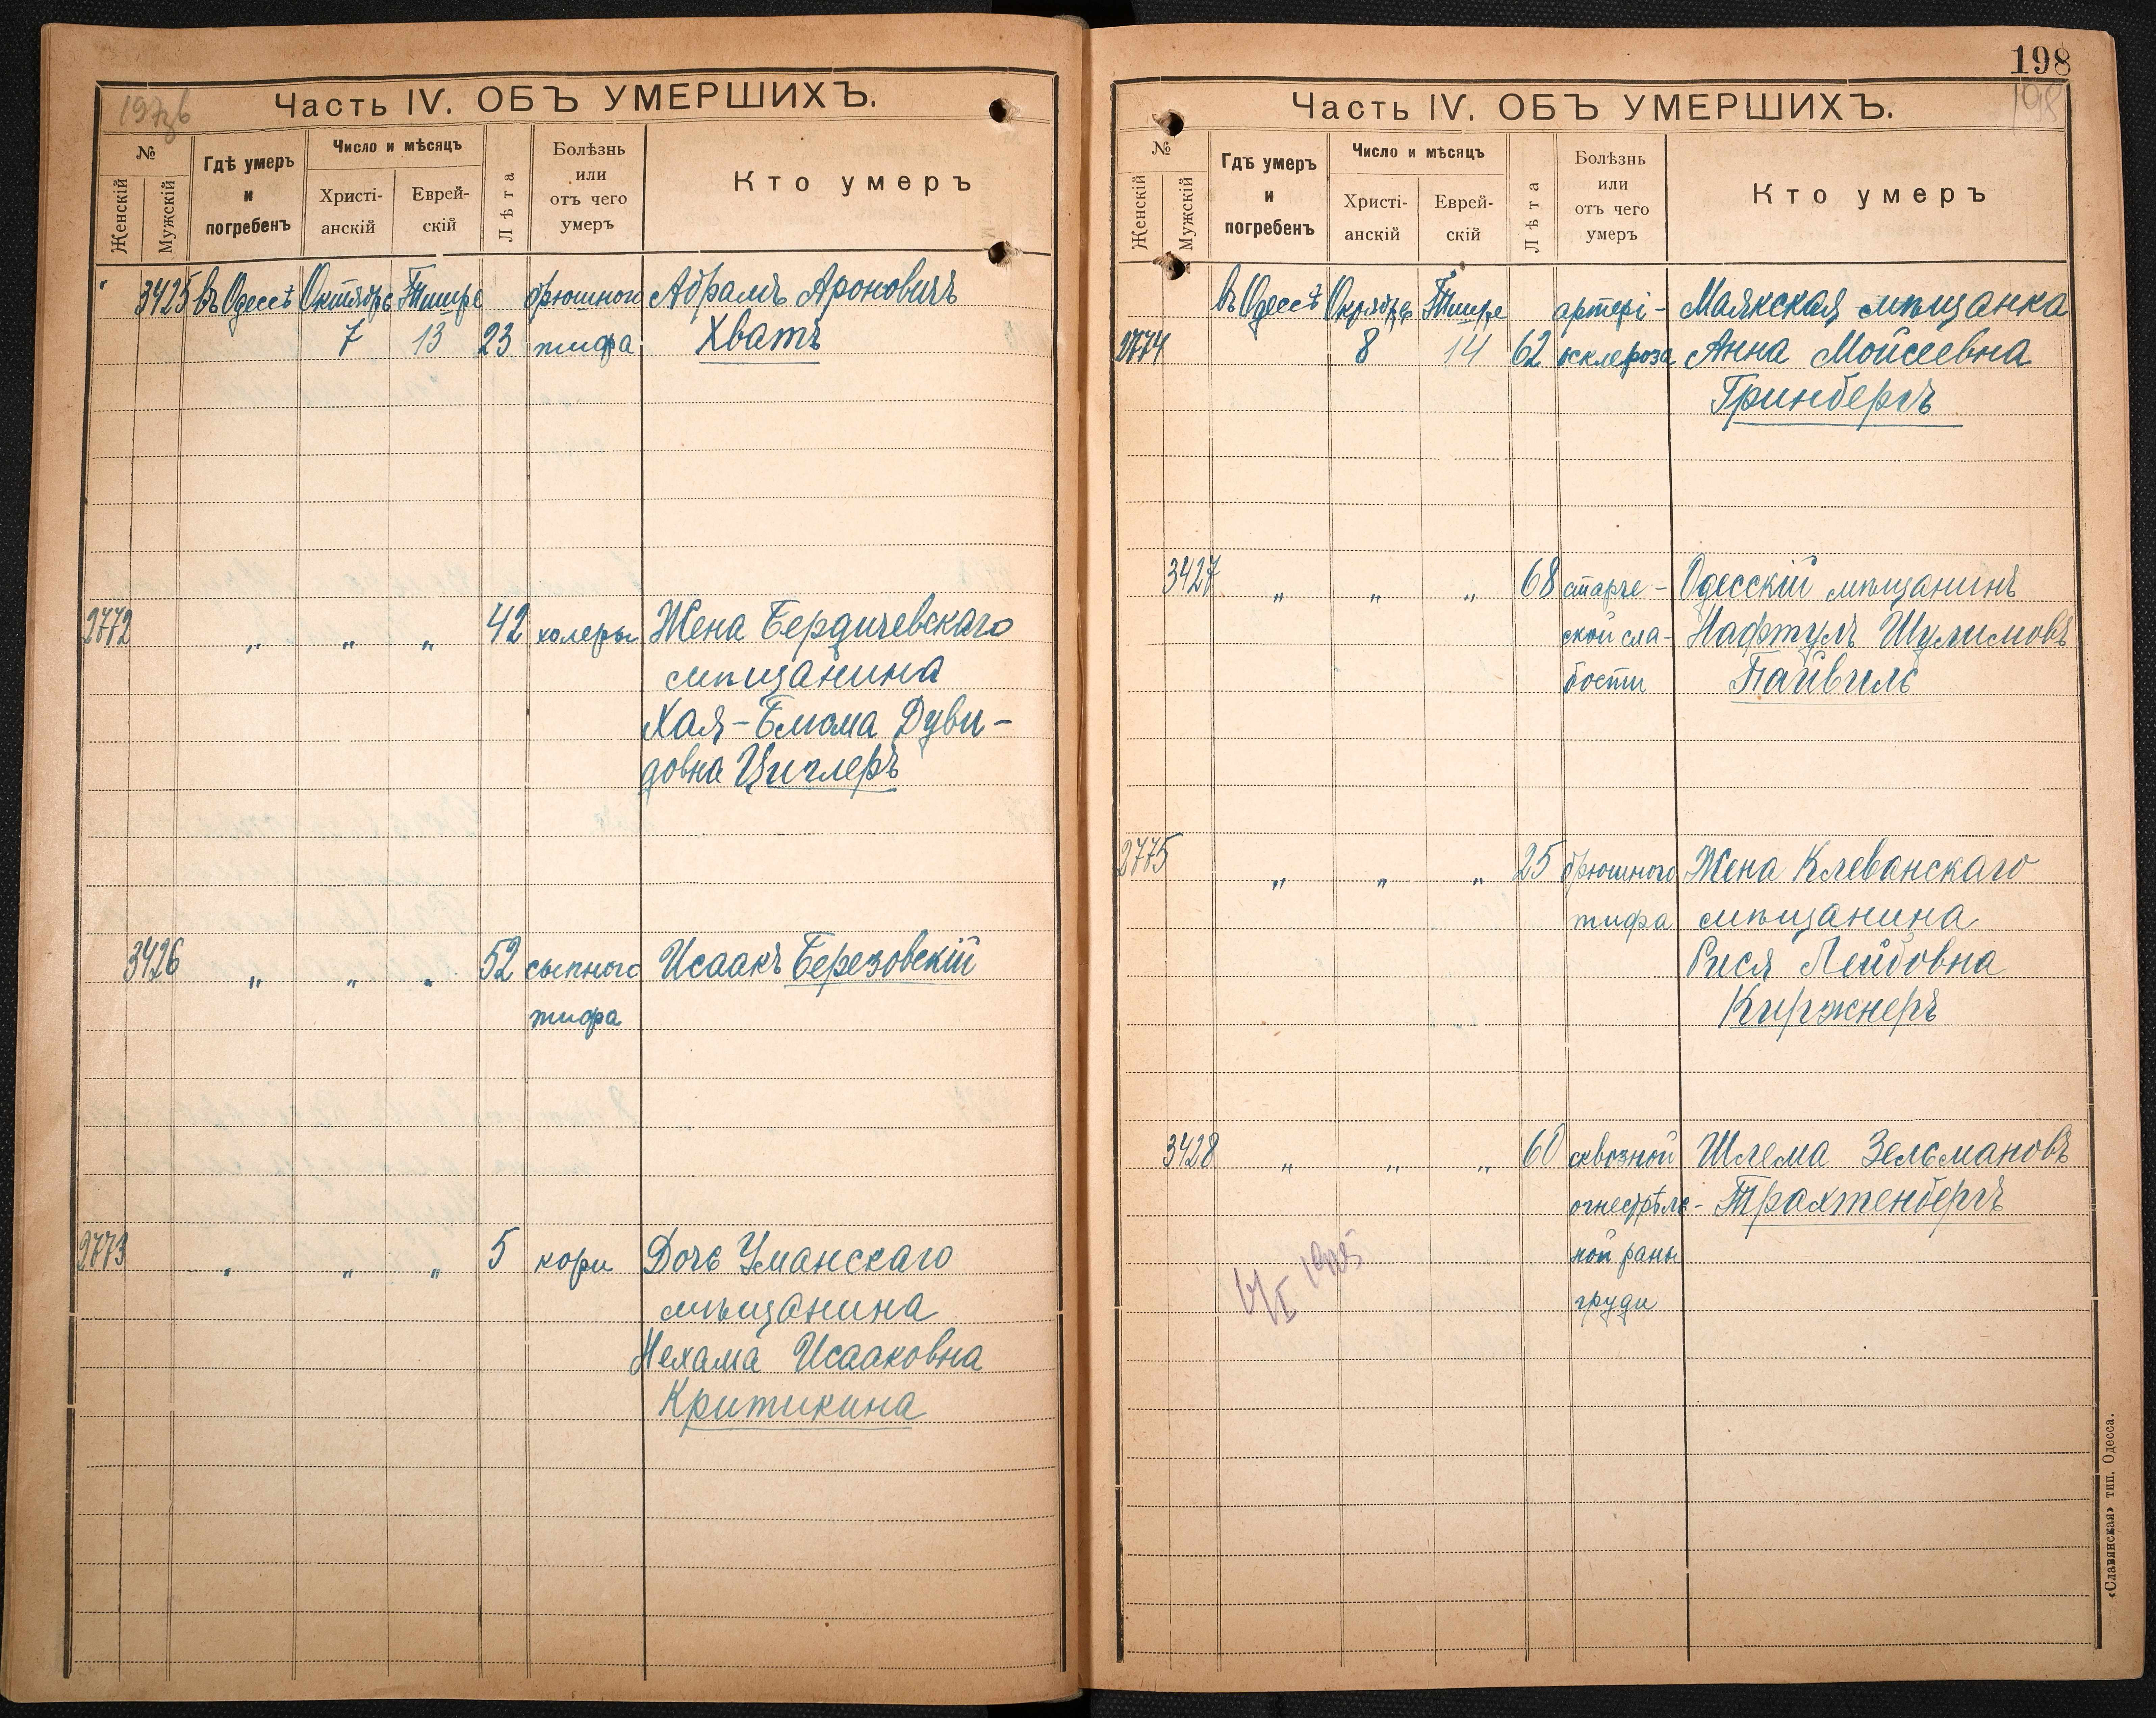 197зб
Часть IV. ОБЪ УМЕРШИХЪ.
№
Женскій
Мужскій
Гдѣ умеръ
и
погребенъ
Число и мѣсяцъ
Христі-
анскій
Еврей-
скій
Лѣта
Болѣзнь
или
отъ чего
умеръ
Кто умеръ
" 3425 въ Одессѣ Октябрь Тишре брюшного Абрамъ Ароновичъ
7 13 23 тифа Хватъ
2772 " " " 42 холеры Жена Бердичевскаго
мѣщанина
Хая-Блюма Дуви-
довна Циглеръ
3426 " " " 52 сыпного Исаакъ Березовскій
тифа
2773 " " " 5 кори Дочь Уманскаго
мѣщанина
Нехама Исааковна
Критикина
198
198
Часть IV. ОБЪ УМЕРШИХЪ.
№
Женскій
Мужскій
Гдѣ умеръ
и
погребенъ
Число и мѣсяцъ
Христі-
анскій
Еврей-
скій
Лѣта
Болѣзнь
или
отъ чего
умеръ
Кто умеръ
въ Одессѣ Октябрь Тишре артері- Маякская мѣщанка
2774 8 14 62 осклероза Анна Мойсеевна
Гринбергъ
3427 " " " 68 старче- Одесскій мѣщанинъ
ской сла- Нафтулъ Шулимовъ
бости Пайвиль
2775 " " " 25 брюшного Жена Клеванскаго
тифа мѣщанина
Рися Лейбовна
Киржнеръ
3428 " " " 60 сквозной Шлема Зельмановъ
огнестрѣль- Трахтенбергъ
ной раны
груди
«Славянская» тип. Одесса.